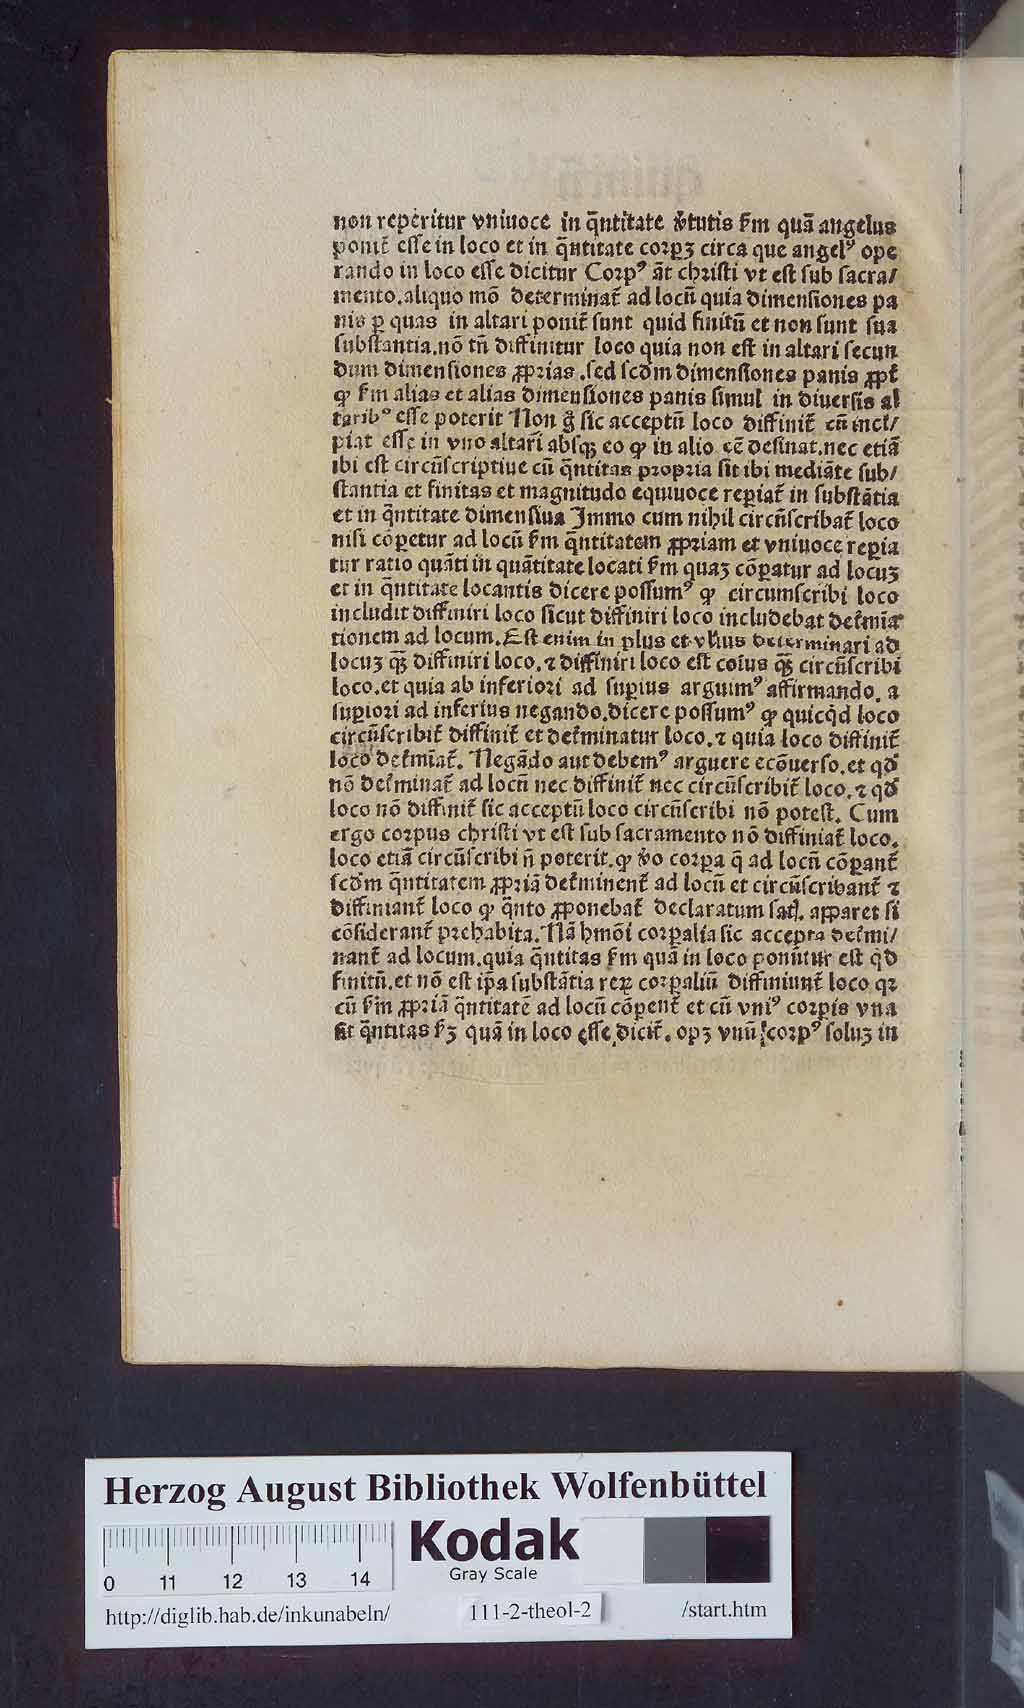 non reperitur vniuoce in q̃ntitate v̓tutis ẜm quã angelus
ponit᷑ eſſe in loco et in q̃ntitate corpꝫ circa que angelꝰ ope
rando in loco eſſe dicitur Corpꝰ ãt chriſti vt eſt ſub ſacra/
mento.aliquo mõ determinat᷑ ad locũ quia dimenſiones pa
nis ꝑ quas in altari ponit᷑ ſunt quid finitũ et non ſunt ſua
ſubſtantia.nõ tñ diffinitur loco quia non eſt in altari ſecun
dum dimenſiones ꝓprias.ſed ſcdm dimenſiones panis ꝓpt̓
ꝙ ẜm alias et alias dimenſiones panis ſimul in diuerſis al
taribꝰ eſſe poterit Non g̊ ſic acceptũ loco diffinit᷑ cũ inci/
piat eſſe in vno altari abſqꝫ eo ꝙ in alio eẽ deſinat.nec etiã
ibi eſt circũſcriptiue cũ q̃ntitas propria ſit ibi mediãte ſub/
ſtantia et finitas et magnitudo equiuoce reꝑiat᷑ in ſubſtãtia
et in q̃ntitate dimenſiua Immo cum nihil circũſcribat᷑ loco
niſi cõꝑetur ad locũ ẜm q̃ntitatem ꝓpriam et vniuoce reꝑia
tur ratio quãti in quãtitate locati ẜm quaꝫ cõꝑatur ad locuꝫ
et in q̃ntitate locantis dicere poſſumꝰ ꝙ circumſcribi loco
includit diffiniri loco ſicut diffiniri loco includebat det̓mĩa
tionem ad locum.Eſt enim in plus et vlius determinari ad
locuꝫ qꝫ̃ diffiniri loco.⁊ diffiniri loco eſt coĩus qꝫ̃ circũſcribi
loco.et quia ab inferiori ad ſuꝑius arguimꝰ affirmando. a
ſuꝑiori ad inferius negando.dicere poſſumꝰ ꝙ quicq̇d loco
circũſcribit᷑ diffinit᷑ et det̓minatur loco.⁊ quia loco diffinit᷑
loco det̓mĩat᷑. Negãdo aut debemꝰ arguere ecõuerſo.et qď
nõ det̓minat᷑ ad locũ nec diffinit᷑ nec circũſcribit᷑ loco.⁊ qď
loco nõ diffinit᷑ ſic acceptũ loco circũſcribi nõ poteſt. Cum
ergo corpus chriſti vt eſt ſub ſacramento nõ diffiniat᷑ loco.
loco etiã circũſcribi ñ poterit.ꝙ v̓o corꝑa q̃ ad locũ cõꝑant᷑
ſcdm q̃ntitatem ꝓpriã det̓minent᷑ ad locũ et circũſcribant᷑ ⁊
diffiniant᷑ loco ꝙ q̃nto ꝓponebat᷑ declaratum ſatꝭ. apparet ſi
cõſiderant᷑ prehabita.Nã hmõi corꝑalia ſic accepta det̓mi/
nant᷑ ad locum.quia q̃ntitas ẜm quã in loco ponũtur eſt q̇d
finitũ.et nõ eſt ip̃a ſubſtãtia reꝝ corꝑaliũ diffiniunt᷑ loco qꝛ
cũ ẜm ꝓpriã q̃ntitatẽ ad locũ cõꝑent᷑ et cũ vniꝰ corꝑis vna
ſit q̃ntitas ẜꝫ quã in loco eſſe dicit᷑. opꝫ vnũ corpꝰ ſoluꝫ in
Herzog August Bibliothek Wolfenbüttel
Kodak
Gray Scale
0 11 12 13 14
http://diglib.hab.de/inkunabeln/ 111-2-theol-2 /start.htm